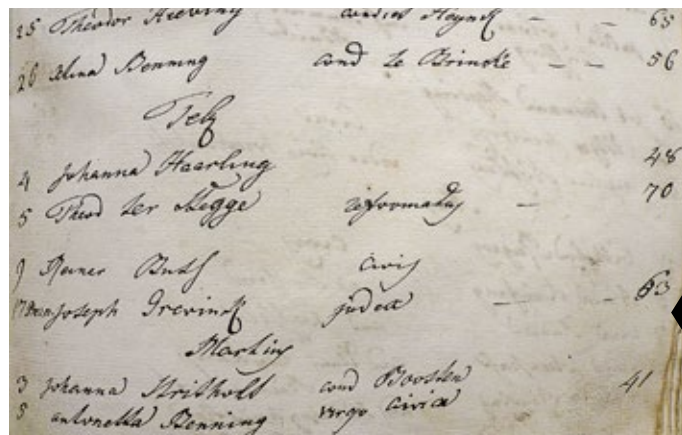 25 Theodor Hieving condict Heynck — — 65
26 Alina Benning cond te Brincke — — 56
Feb
4 Johanna Haarling 48
5 Theod ter Hegge reformatus — 70
9 Reiner Buth civis
17 Joseph Grevinck judex — — 63
Martius
3 Johanna Stritholt cond Boosten 41
8 antonetta Benning virgo civica